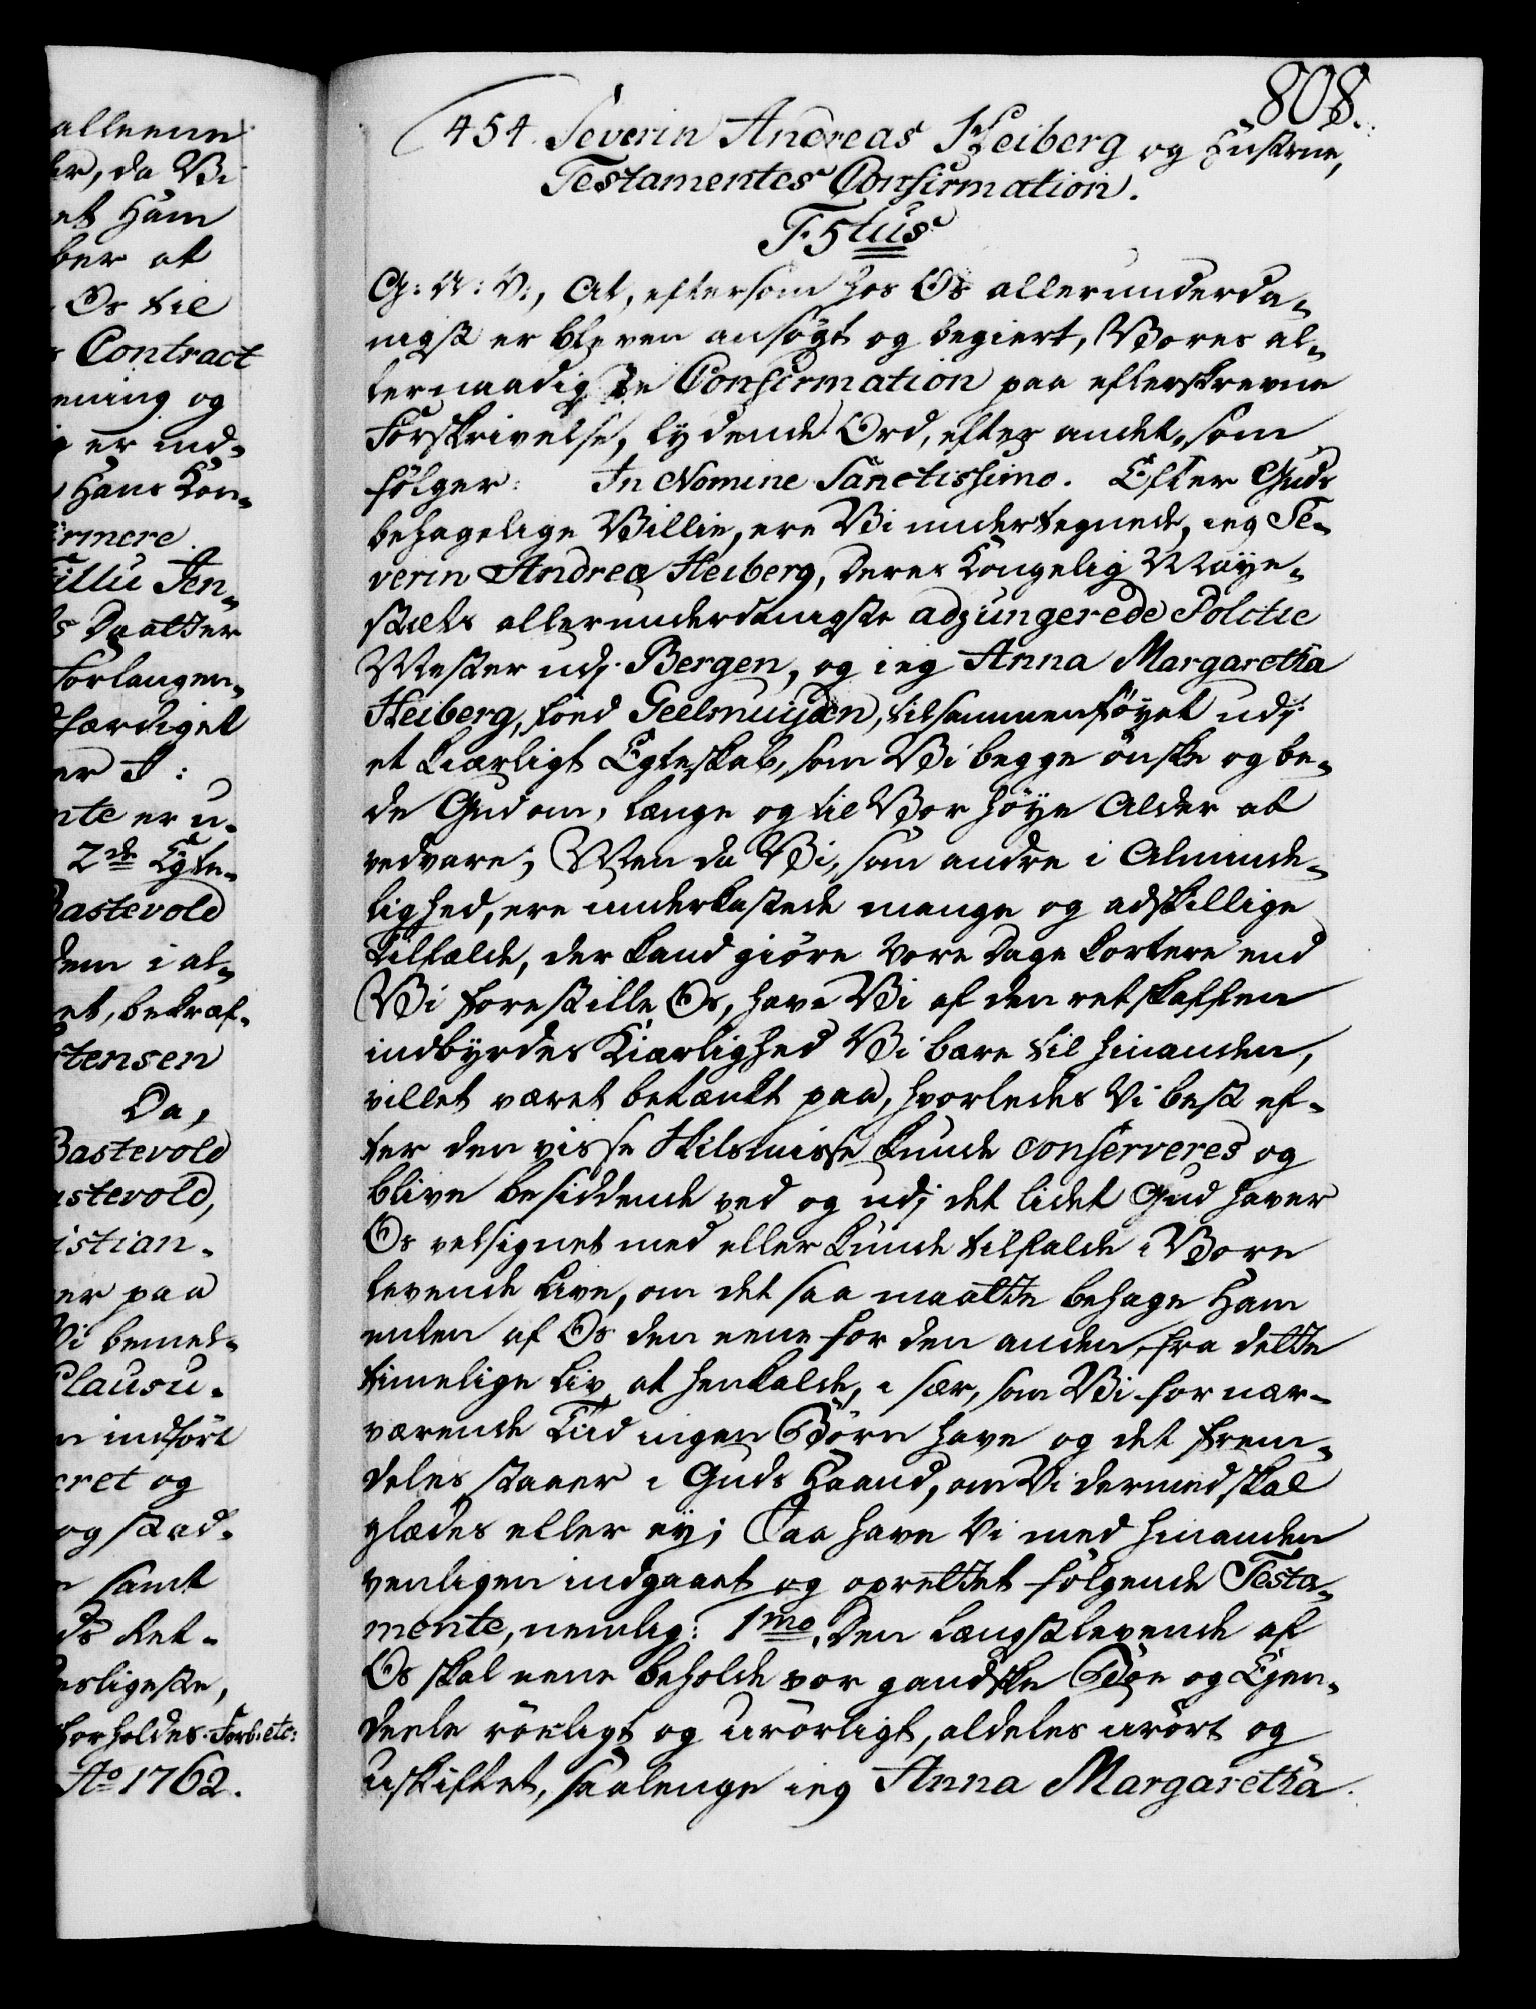 allernn
er, da Vi
et Ham
ber at
Os til
Contract
ening og
er ind-
Hans Kon-
ermere
Tillu Jen-
s Daatter
forlangen-
færdiget
er I:
nte er u-
2de Egte-
Bastevold
dem i al-
et, bekræf-
stensen
Da,
Bastevold
astevold,
istian-
er paa
Vi bemel-
Clausu-
n indført
cret og
og stad-
samt
ds Ret-
esligeste,
forholdes. Forb: etc:
Ao 1762.
808.
454. Severin Andreas Heiberg og Hustrue,
Testamentes Confirmation.
F5tus
G: A: V:, At, eftersom hos Os allerunderda-
nigst er bleven ansøgt og begiert, Vores al-
lernaadigste Confirmation paa efterskrevne
Forskrivelse, lydende Ord, efter andet, som
følger: In Nomine Sanctissimo. Efter Guds
behagelige Villie, ere Vi undertegnede, ieg Se-
verin Andreæ Heiberg, Deres Kongelig Maye-
stæts allerunderdanigste adjungerede Politie
Mester udi Bergen, og ieg Anna Margaretha
Heiberg, fød Geelmuijden, tilsammenføyet udi
et kiærligt Egteskab, som Vi begge ønske og be-
de Gud om, længe og til Vor høye Alder at
vedvare; Men da Vi, som andre i Alminde-
lighed, ere underkastede mange og adskillige
Tilfælde, der kand giøre Vore Dage kortere end
Vi forestille Os, have Vi af den retskaffen
indbyrdes Kiærlighed Vi bære til hinanden,
villet været betænkt paa, hvorledes Vi best ef-
ter den visse Skilsmisse kunde conserveres og
blive besiddende ved og udi det lidet Gud haver
Os velsignet med eller kunde tilfalde i Vore
levende Live, om det saa maatte behage Ham
enten af Os den eene for den anden, fra dette
timelige Liv at henkalde, i sær, som Vi for nær-
værende Tiid ingen Børn have og det frem-
deles staaer i Guds Haand, om Vi dermed skal
glædes eller ey; Saa have Vi med hinanden
venligen indgaaet og oprettet følgende Testa-
mente, nemlig: 1mo, Den længstlevende af
Os skal eene beholde vor gandske Boe og Eyen-
deele rørligt og urørligt, aldeles urørt og
uskiftet, saalenge ieg Anna Margaretha